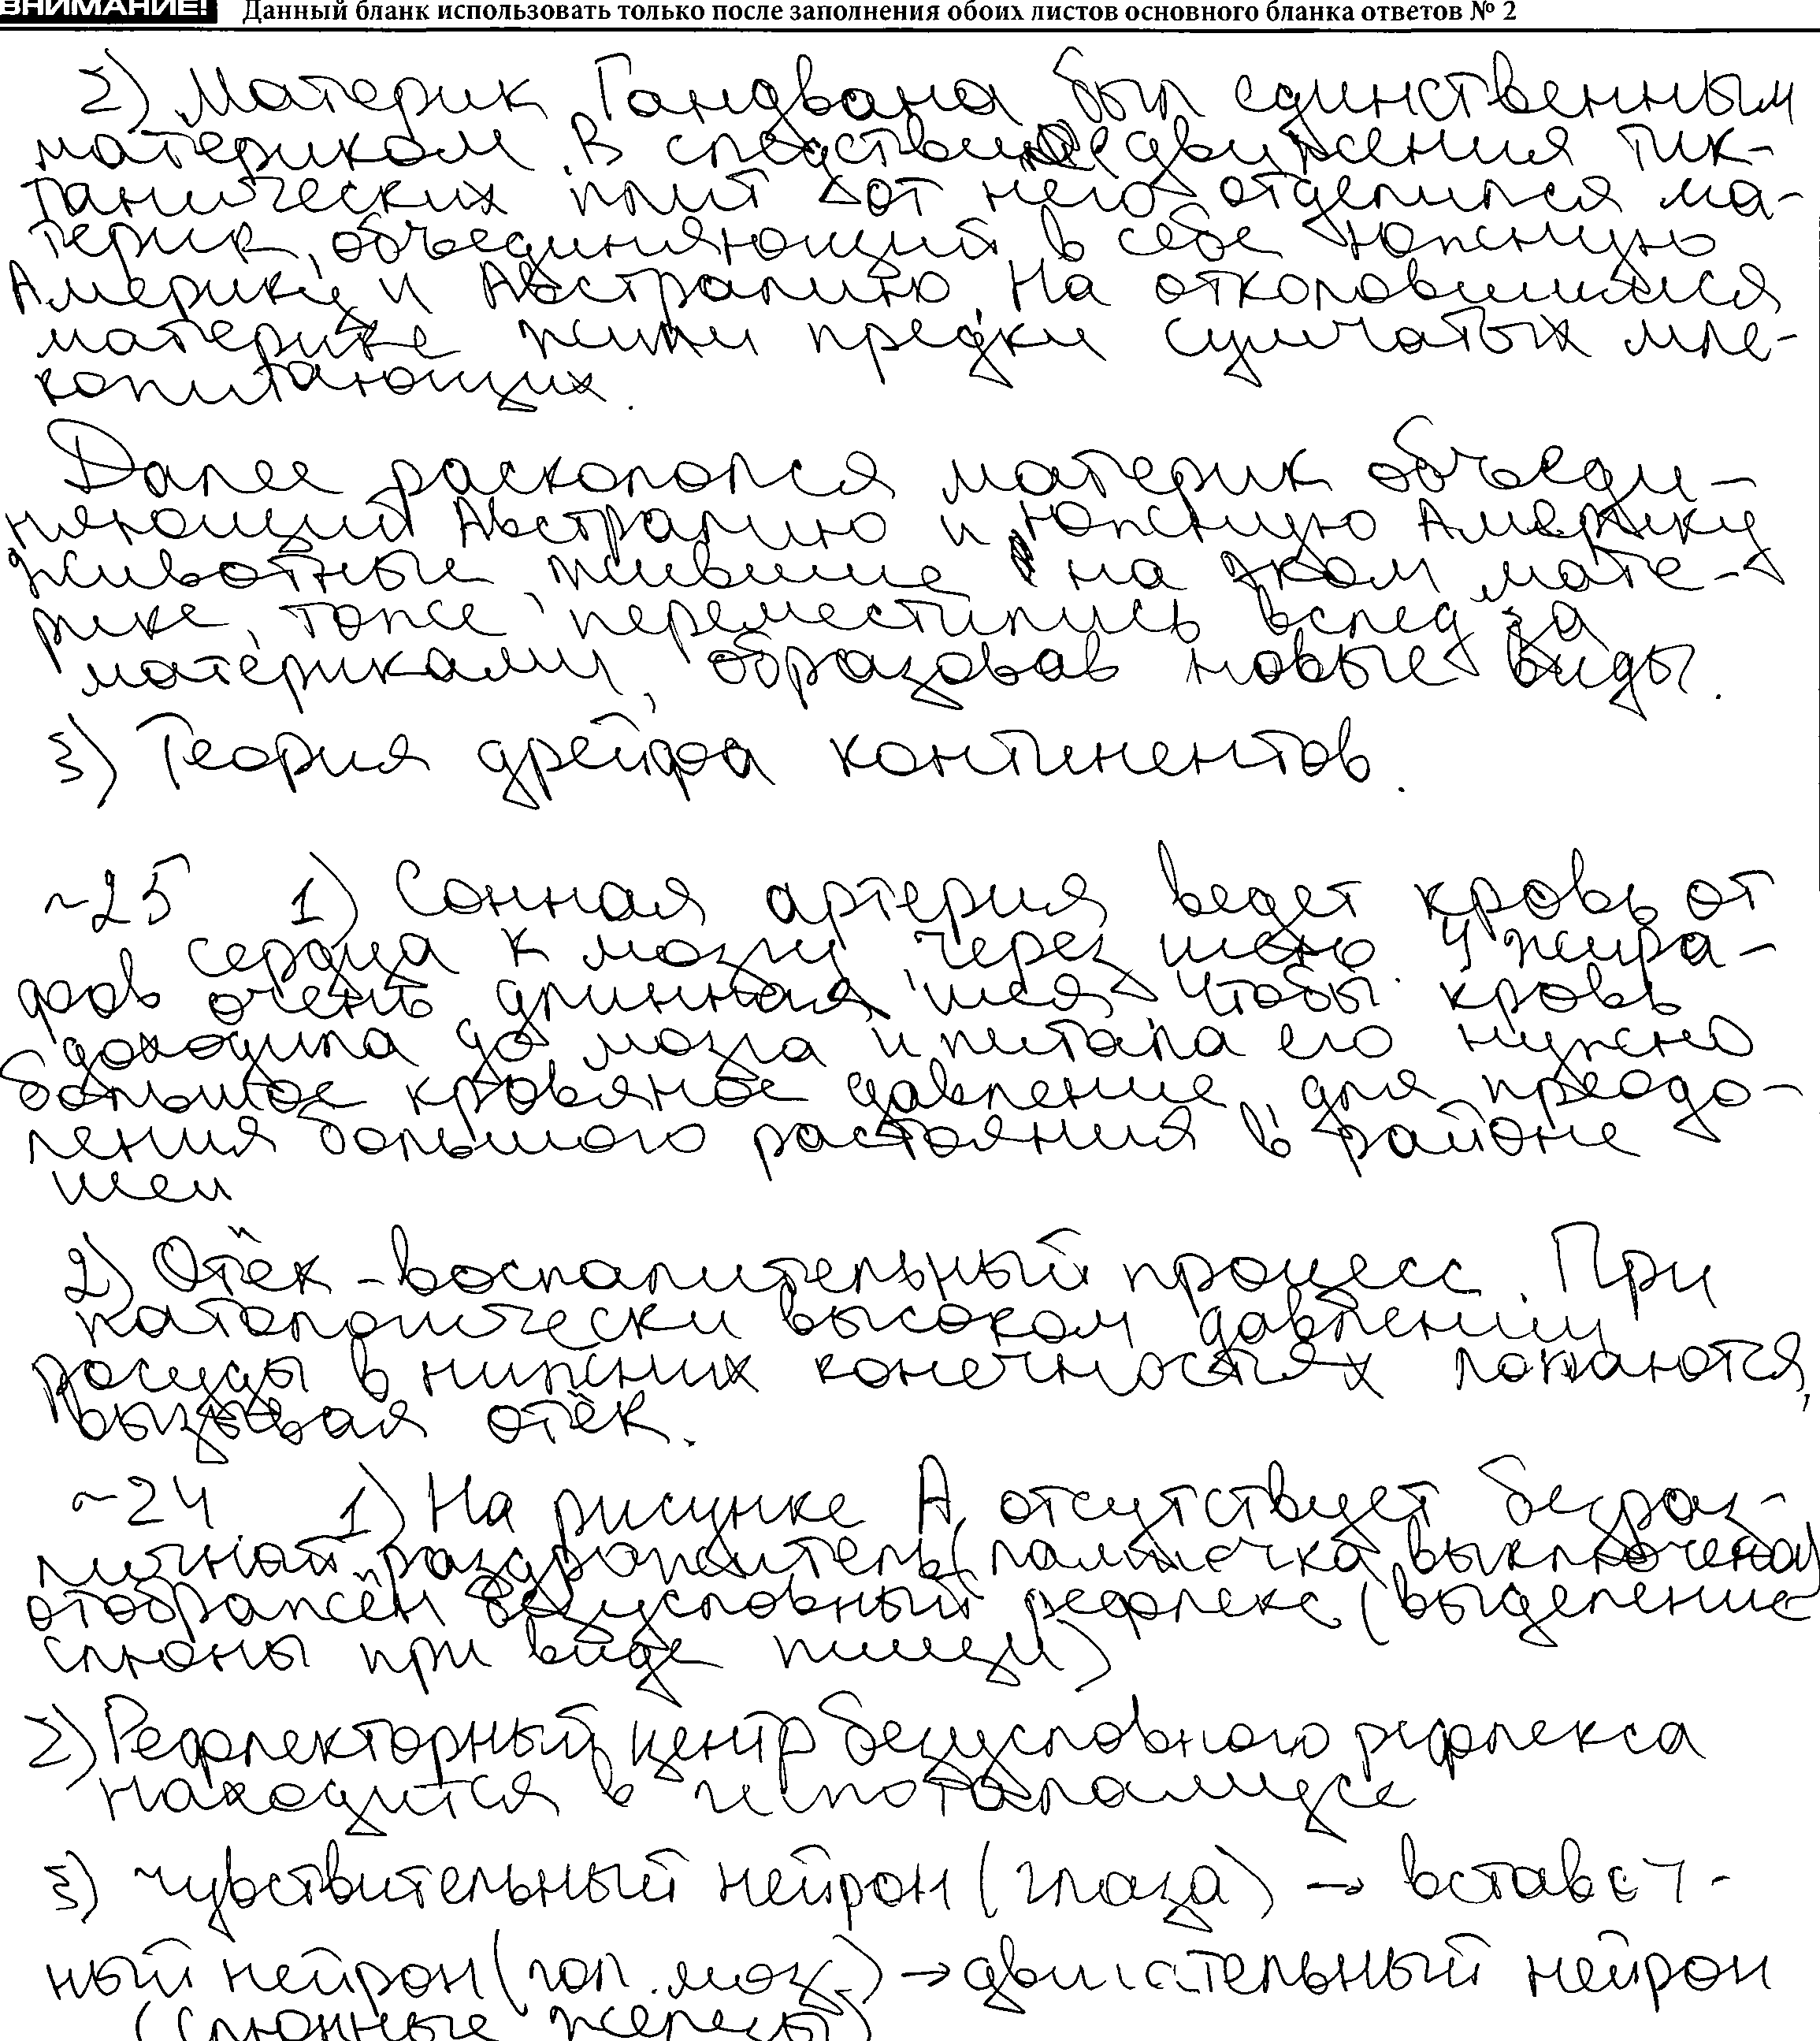 ВНИМАНИЕ! Данный бланк использовать только после заполнения обоих листов основного бланка ответов № 2
2) Материк Гондвана был единственным
материком. В следствие движения тик-
танических плит от него отделился ма-
терик, объединяющий в себе Южную
Америку и Австралию. На отколовшимся
материке жили предки сумчатых мле-
копитающих.
Далее раскололся материк объеди-
няющий Австралию и Южную Америку
животные, жившие на этом мате-
рике, тоже переместились вслед за
материками, образовав новые виды.
3) Теория дрейфа континентов.
~25 1) Сонная артерия ведет кровь от
сердца к мозгу через шею. У жира-
фов очень длинная шея. Чтобы кровь
доходила до мозга и питала его нужно
большое кровяное давление, для преодо-
ления большого растояния в районе
шеи
2) Отёк - воспалительный процесс. При
патологически высоком давлении
сосуды в нижних конечностях лопаются,
вызывая отёк.
~24 1) На рисунке А отсутствует безраз-
личный раздражитель (лампочка выключена)
отображён безусловный рефлекс (выделение
слюны при виде пищи)
2) Рефлекторный центр безусловного рефлекса
находится в гипоталамусе
3) чувствительный нейрон (глаза) → вставоч-
ный нейрон (гол. моз.) → двигательный нейрон
(слюнные железы)